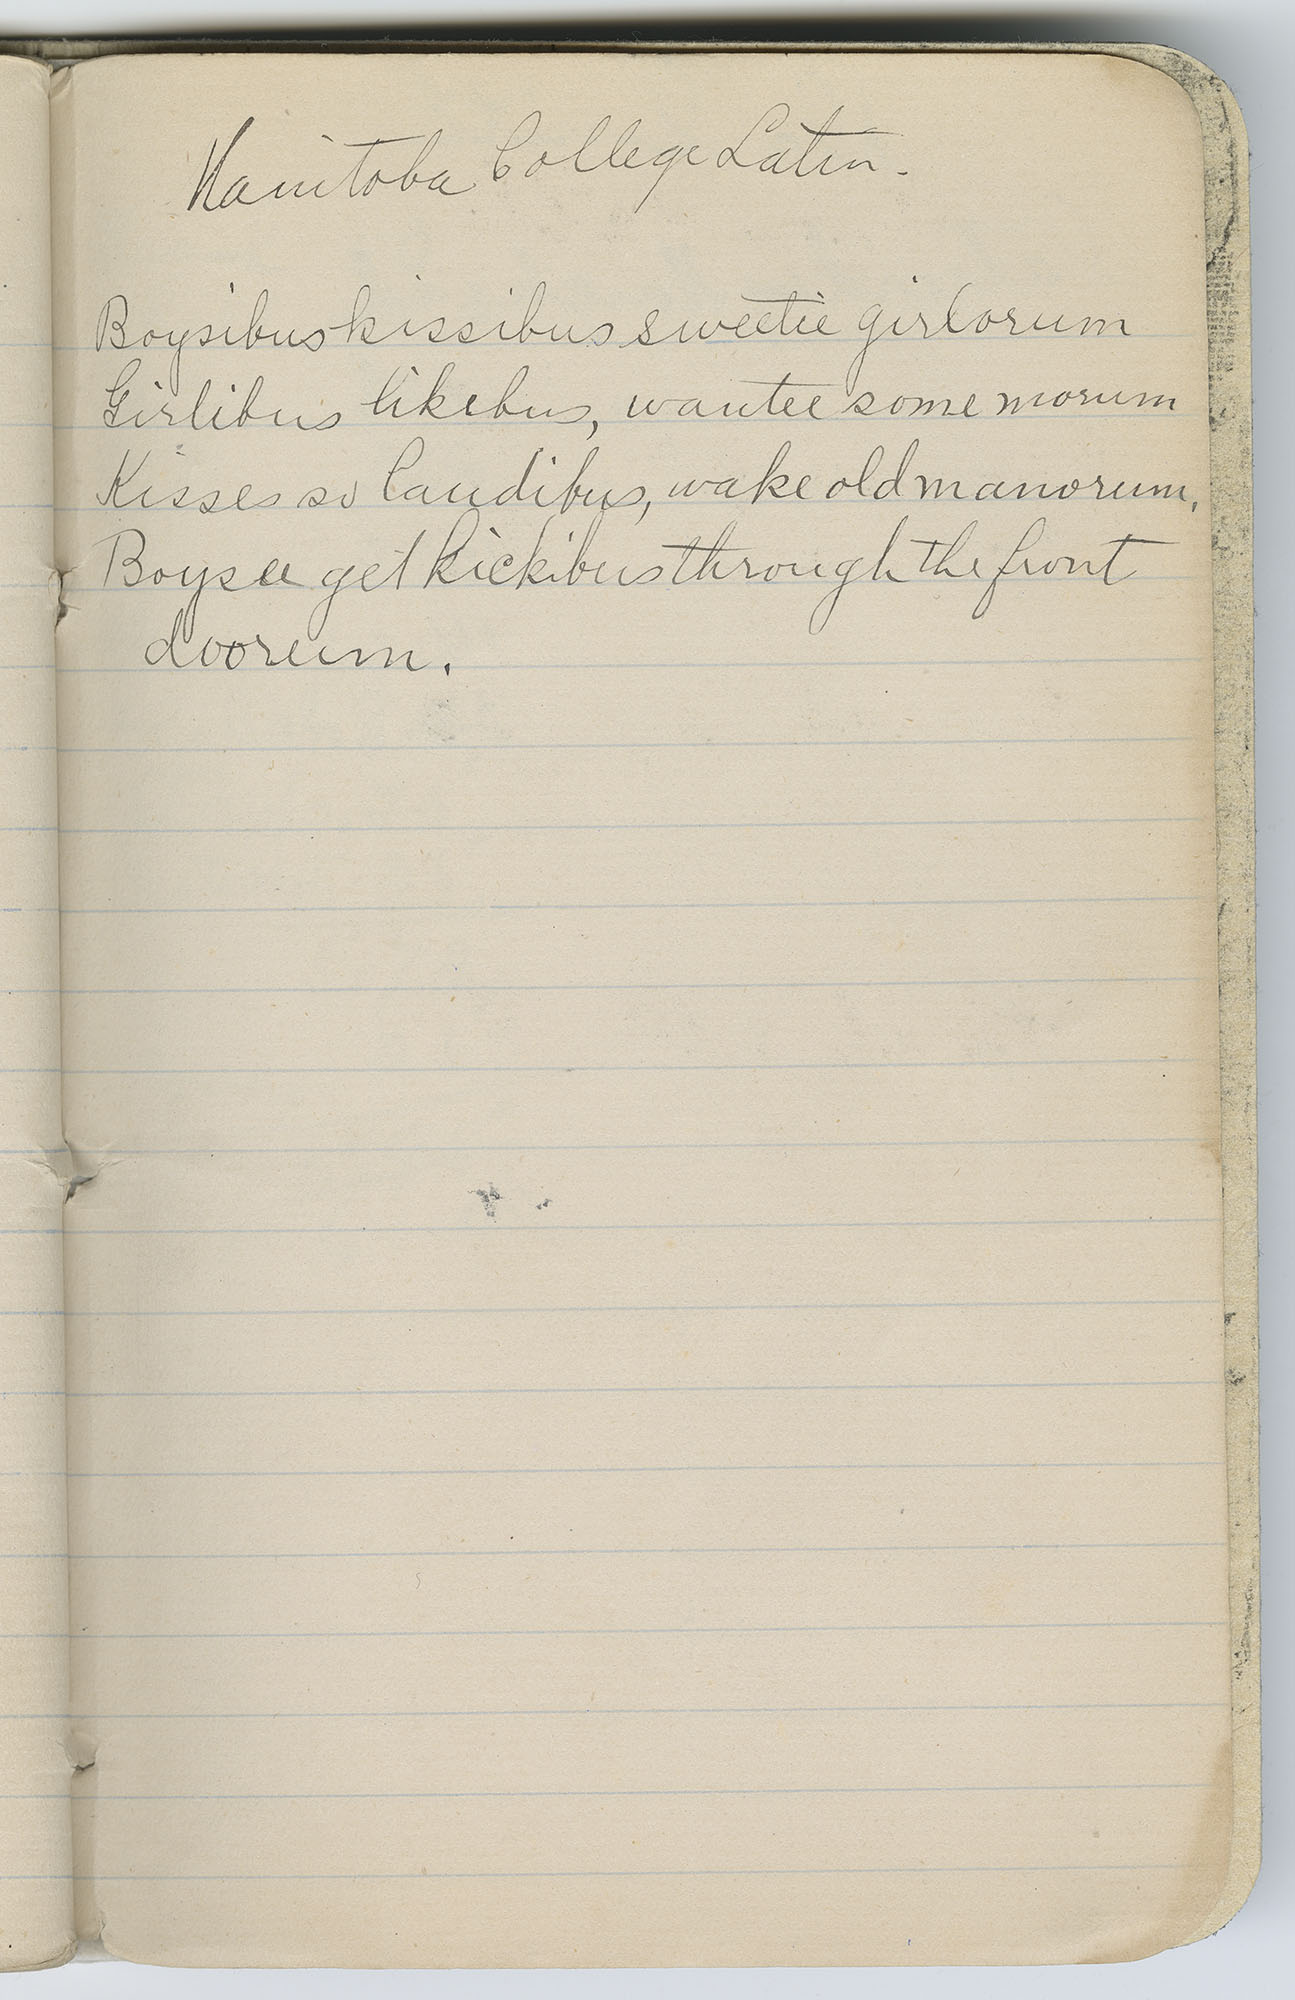 Manitoba College Latin.
Boysibus kissibus sweetie girlorum
Girlibus likebus, wantee some morum
Kisses so laudibus, wake old manorum.
Boysee get kickibus through the front
dooreum.